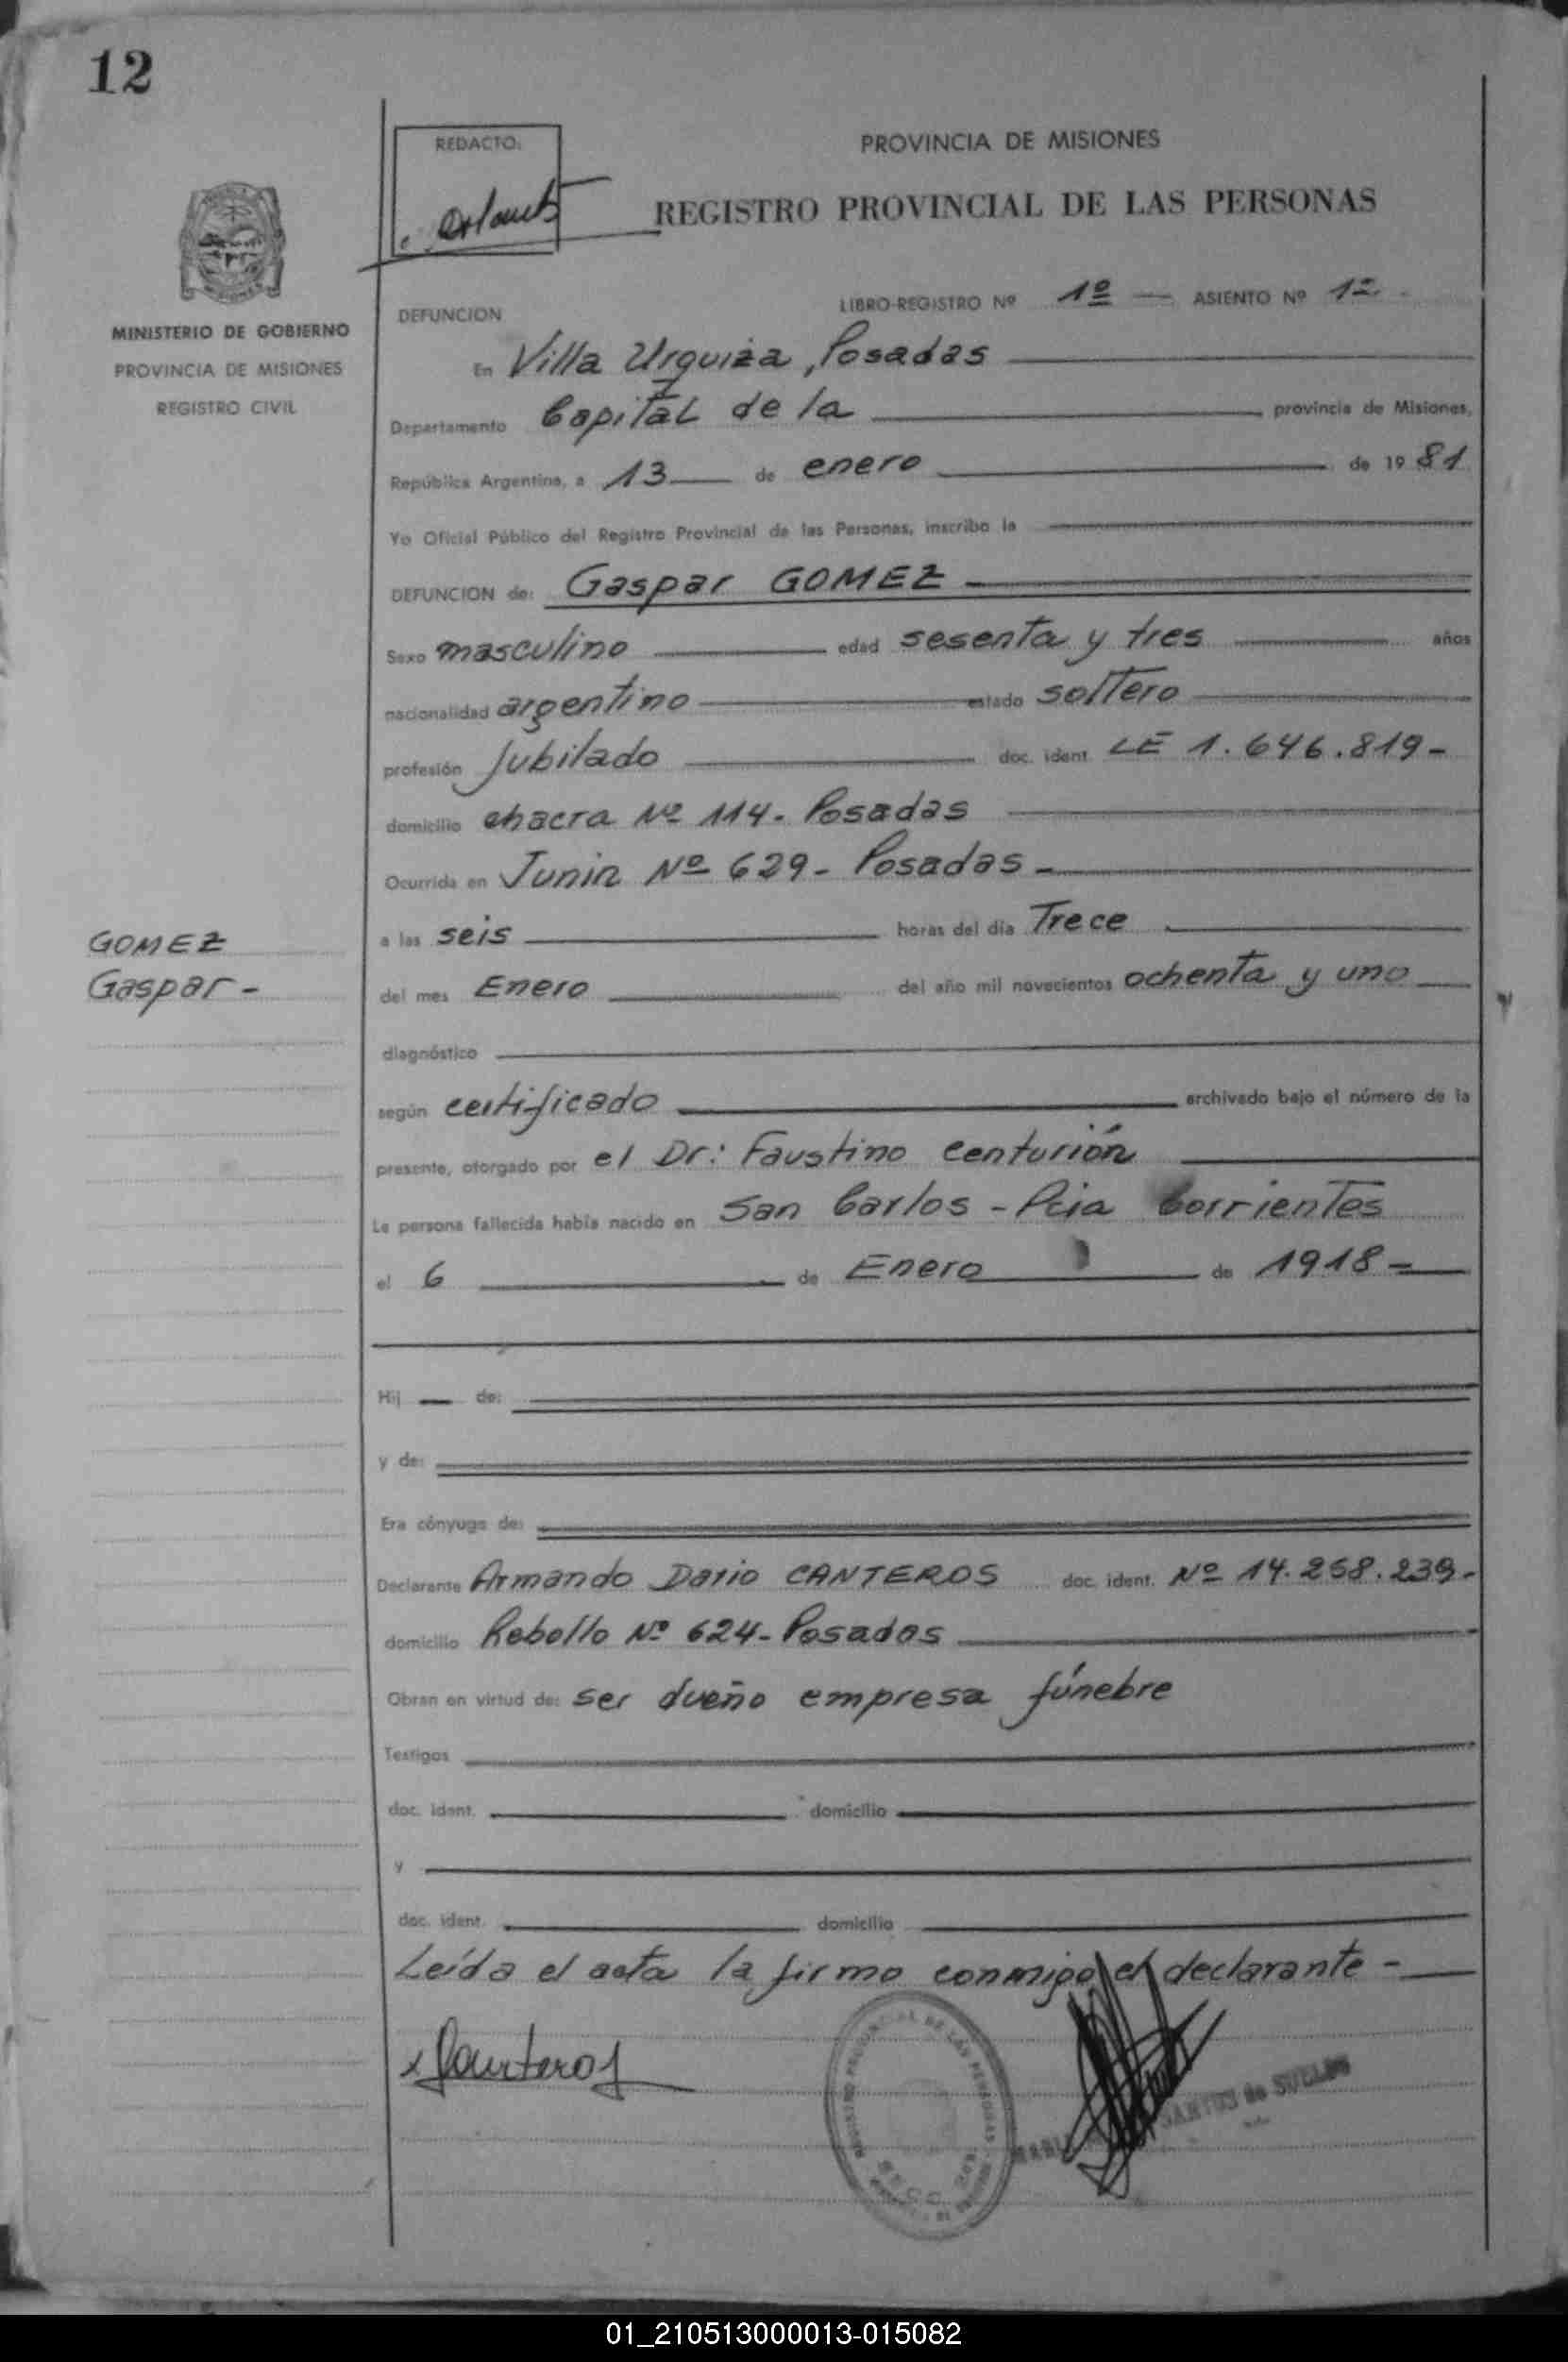 12
REDACTO:
PROVINCIA DE MISIONES
REGISTRO PROVINCIAL DE LAS PERSONAS
MINISTERIO DE GOBIERNO
PROVINCIA DE MISIONES
REGISTRO CIVIL
LIBRO-REGISTRO Nº 1º — ASIENTO Nº 12
DEFUNCION
En Villa Urquiza, Posadas
Departamento Capital de la provincia de Misiones,
República Argentina, a 13 de enero de 1981
Yo Oficial Público del Registro Provincial de las Personas, inscribo la
DEFUNCION de: Gaspar GOMEZ
Sexo masculino edad sesenta y tres años
nacionalidad argentino estado soltero
profesión Jubilado doc. ident. LE 1.646.819-
domicilio chacra Nº 114. Posadas
Ocurrida en Junin Nº 629- Posadas-
GOMEZ
Gaspar-
a las seis horas del día Trece
del mes Enero del año mil novecientos ochenta y uno
diagnóstico
según certificado archivado bajo el número de la
presente, otorgado por el Dr: Faustino Centurión
La persona fallecida había nacido en San Carlos - Pcia Corrientes
el 6 de Enero de 1918-
Hij — de:
y de:
Era cónyuge de:
Declarante Armando Dario CANTEROS doc. ident. Nº 14.258.239-
domicilio Rebollo Nº 624- Posadas
Obran en virtud de: ser dueño empresa fúnebre
Testigos
doc. ident. domicilio
y
doc. ident. domicilio
Leída el acta la firmo conmigo el declarante-
x Canteros
REGISTRO PROVINCIAL DE LAS PERSONAS
SANTOS de SUELDO
01_210513000013-015082